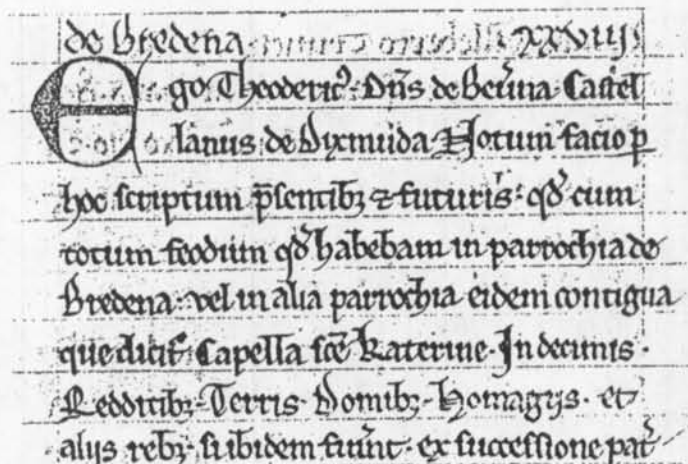 de Bredena xxviij
Ego Theoderic⁹ Dn̄s de beu̾na Castel
lanus de Dixmuida Notum facio ꝑ
hoc scriptum p̄sentibꝫ ⁊ futuris: qd̾ cum
totum feodum qd̾ habebam in parrochia de
Bredena: vel in alia parrochia eidem contigua
que dicit̾ Capella sc̄e Katerine. In decimis.
Redditibꝫ. Terris Domibꝫ. Homagijs. et
alijs rebꝫ. si ibidem fuerint. ex successione pat̾